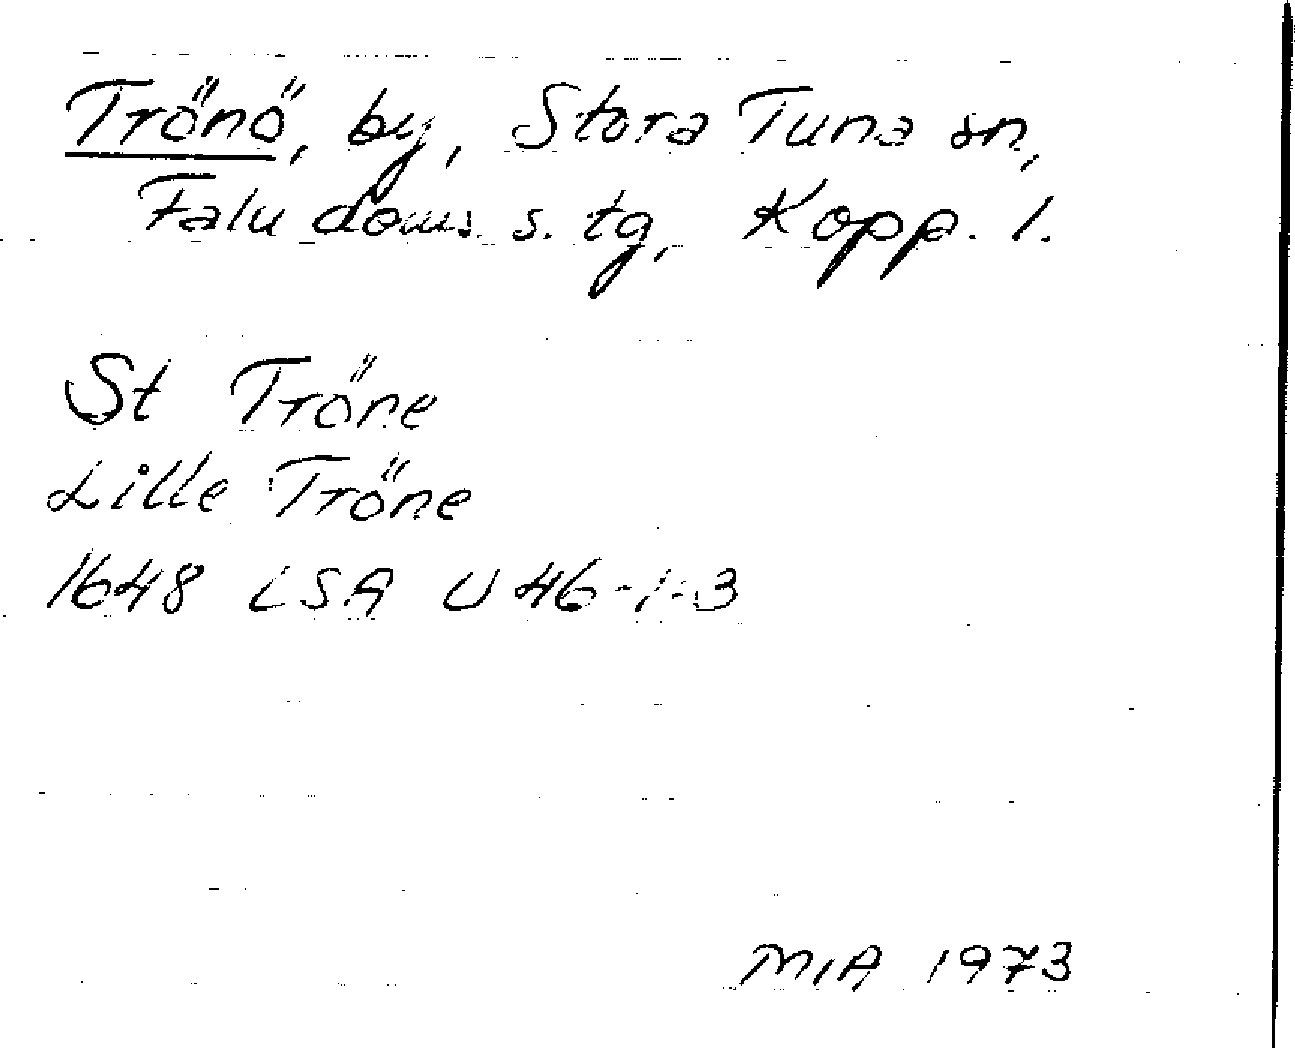 Trönö, by, Stora Tuna sn,
Falu doms. s. tg, Kopp. l.
St Tröne
Lille Tröne
1648 LSA U 46-1:3
MIA 1973